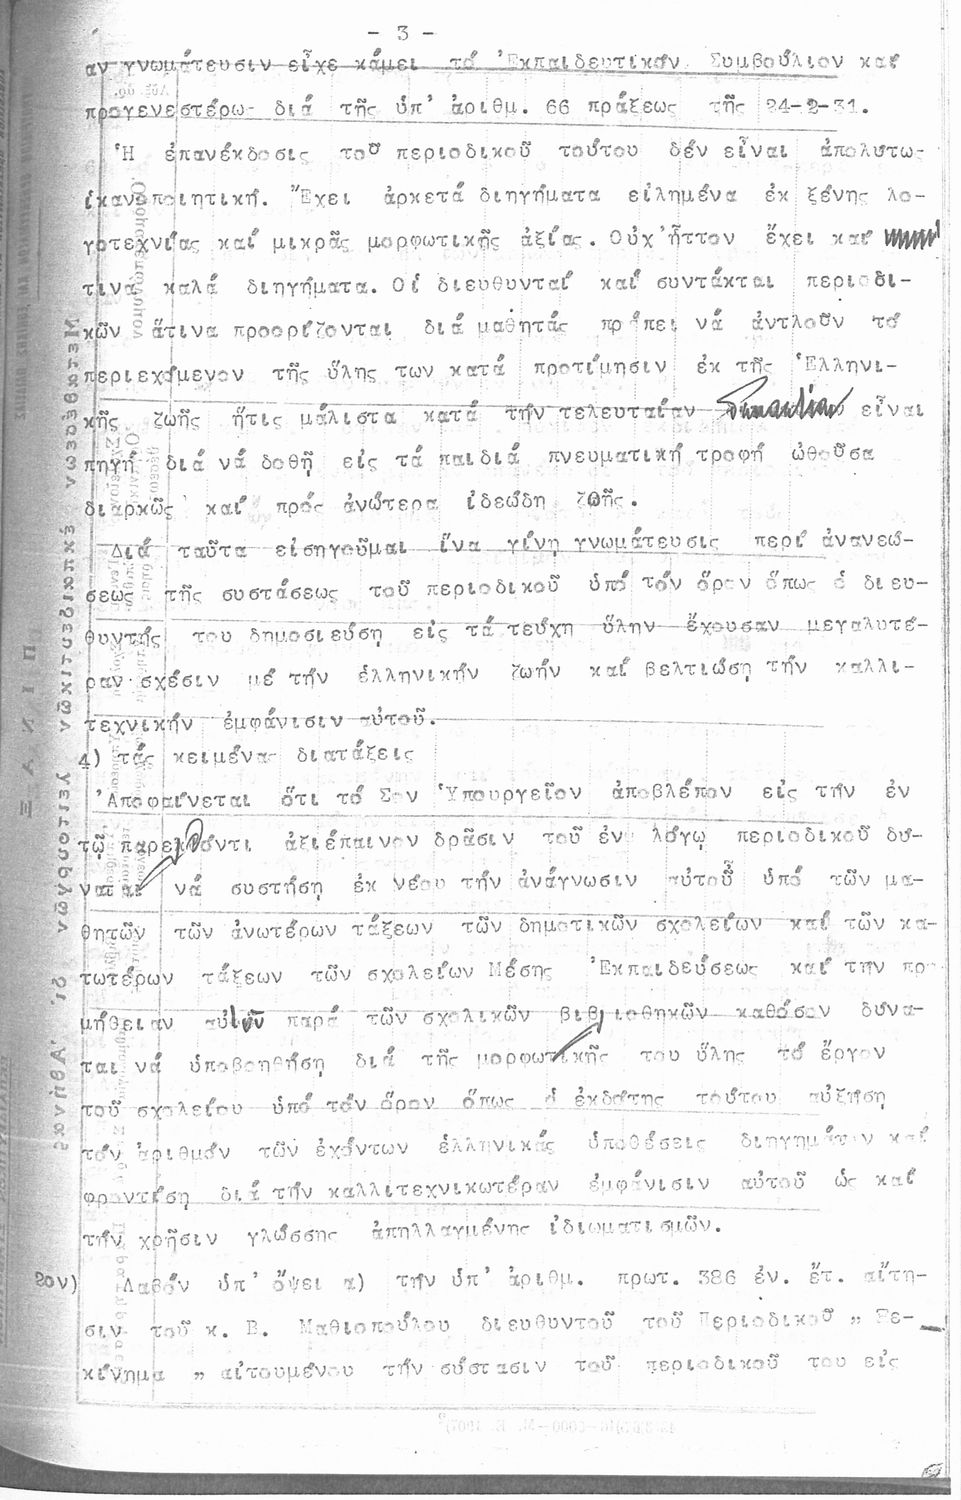 - 3 -
αν γνωμάτευσιν εἶχε κάμει τό Ἐκπαιδευτικόν Συμβούλιον καί
προγενεστέρω διά τῆς ὑπ' ἀριθμ. 66 πράξεως τῆς 24-2-31.
Ἡ ἐπανέκδοσις τοῦ περιοδικοῦ τούτου δέν εἶναι ἀπολύτως
ἱκανοποιητική. Ἔχει ἀρκετά διηγήματα εἰλημένα ἐκ ξένης λο-
γοτεχνίας καί μικρᾶς μορφωτικῆς ἀξίας. Οὐχ' ἧττον ἔχει καί
τινά καλά διηγήματα. Οἱ διευθυνταί καί συντάκται περιοδι-
κῶν ἅτινα προορίζονται διά μαθητάς πρέπει νά ἀντλοῦν τό
περιεχόμενον τῆς ὕλης των κατά προτίμησιν ἐκ τῆς Ἑλληνι-
κῆς ζωῆς ἥτις μάλιστα κατά τήν τελευταίαν δεκαετίαν εἶναι
πηγή διά νά δοθῇ εἰς τά παιδιά πνευματική τροφή ὠθοῦσα
διαρκῶς καί πρός ἀνώτερα ἰδεώδη ζωῆς.
Διά ταῦτα εἰσηγοῦμαι ἵνα γίνῃ γνωμάτευσις περί ἀνανεώ-
σεως τῆς συστάσεως τοῦ περιοδικοῦ ὑπό τόν ὅρον ὅπως ὁ διευ-
θυντής του δημοσιεύσῃ εἰς τά τεύχη ὕλην ἔχουσαν μεγαλυτέ-
ραν σχέσιν μέ τήν ἑλληνικήν ζωήν καί βελτιώσῃ τήν καλλι-
τεχνικήν ἐμφάνισιν αὐτοῦ.
4) τάς κειμένας διατάξεις
Ἀποφαίνεται ὅτι τό Σον Ὑπουργεῖον ἀποβλέπον εἰς τήν ἐν
τῷ παρελθόντι ἀξιέπαινον δρᾶσιν τοῦ ἐν λόγῳ περιοδικοῦ δύ-
ναται νά συστήσῃ ἐκ νέου τήν ἀνάγνωσιν αὐτοῦ ὑπό τῶν μα-
θητῶν τῶν ἀνωτέρων τάξεων τῶν δημοτικῶν σχολείων καί τῶν κα-
τωτέρων τάξεων τῶν σχολείων Μέσης Ἐκπαιδεύσεως καί τήν προ
μήθειαν αὐτοῦ παρά τῶν σχολικῶν βιβλιοθηκῶν καθόσον δύνα-
ται νά ὑποβοηθήσῃ διά τῆς μορφωτικῆς του ὕλης τό ἔργον
τοῦ σχολείου ὑπό τόν ὅρον ὅπως ὁ ἐκδότης τούτου αὐξήσῃ
τόν ἀριθμόν τῶν ἐχόντων ἑλληνικάς ὑποθέσεις διηγημάτων καί
φροντίσῃ διά τήν καλλιτεχνικωτέραν ἐμφάνισιν αὐτοῦ ὡς καί
τήν χρῆσιν γλώσσης ἀπηλλαγμένης ἰδιωματισμῶν.
20ν) Λαβόν ὑπ' ὄψει α) τήν ὑπ' ἀριθμ. πρωτ. 386 ἐν. ἔτ. αἴτη-
σιν τοῦ κ. Β. Μαθιοπούλου διευθυντοῦ τοῦ Περιοδικοῦ „ Ξε-
κίνημα „ αἰτουμένου τήν σύστασιν τοῦ περιοδικοῦ του εἰς